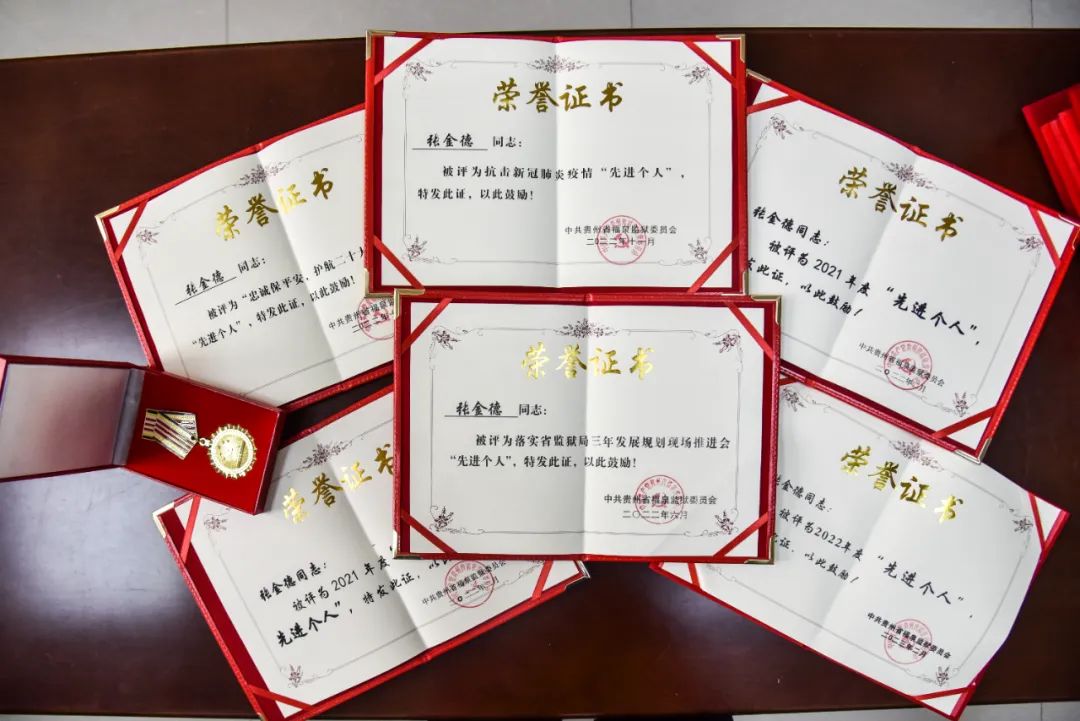 荣誉证书
张金德 同志：
被评为抗击新冠肺炎疫情“先进个人”，
特发此证，以此鼓励！
中共贵州省福泉监狱委员会
二〇二二年十一月
荣誉证书
张金德 同志：
被评为“忠诚保平安，护航二十大
“先进个人”，特发此证，以此鼓励！
中共贵州省福泉监
荣誉证书
张金德同志：
被评为2021年度“先进个人”，
发此证，以此鼓励！
中共贵州省福泉监狱委员会
荣誉证书
张金德 同志：
被评为落实省监狱局三年发展规划现场推进会
“先进个人”，特发此证，以此鼓励！
中共贵州省福泉监狱委员会
二〇二二年六月
荣誉证书
张金德同志：
被评为2021年度
先进个人”，特发此证，以
中共贵州省福泉监狱委员会
荣誉证书
张金德同志：
被评为2022年度“先进个人”，
此证，以此鼓励！
中共贵州省福泉监狱委员会
二〇二三年二月